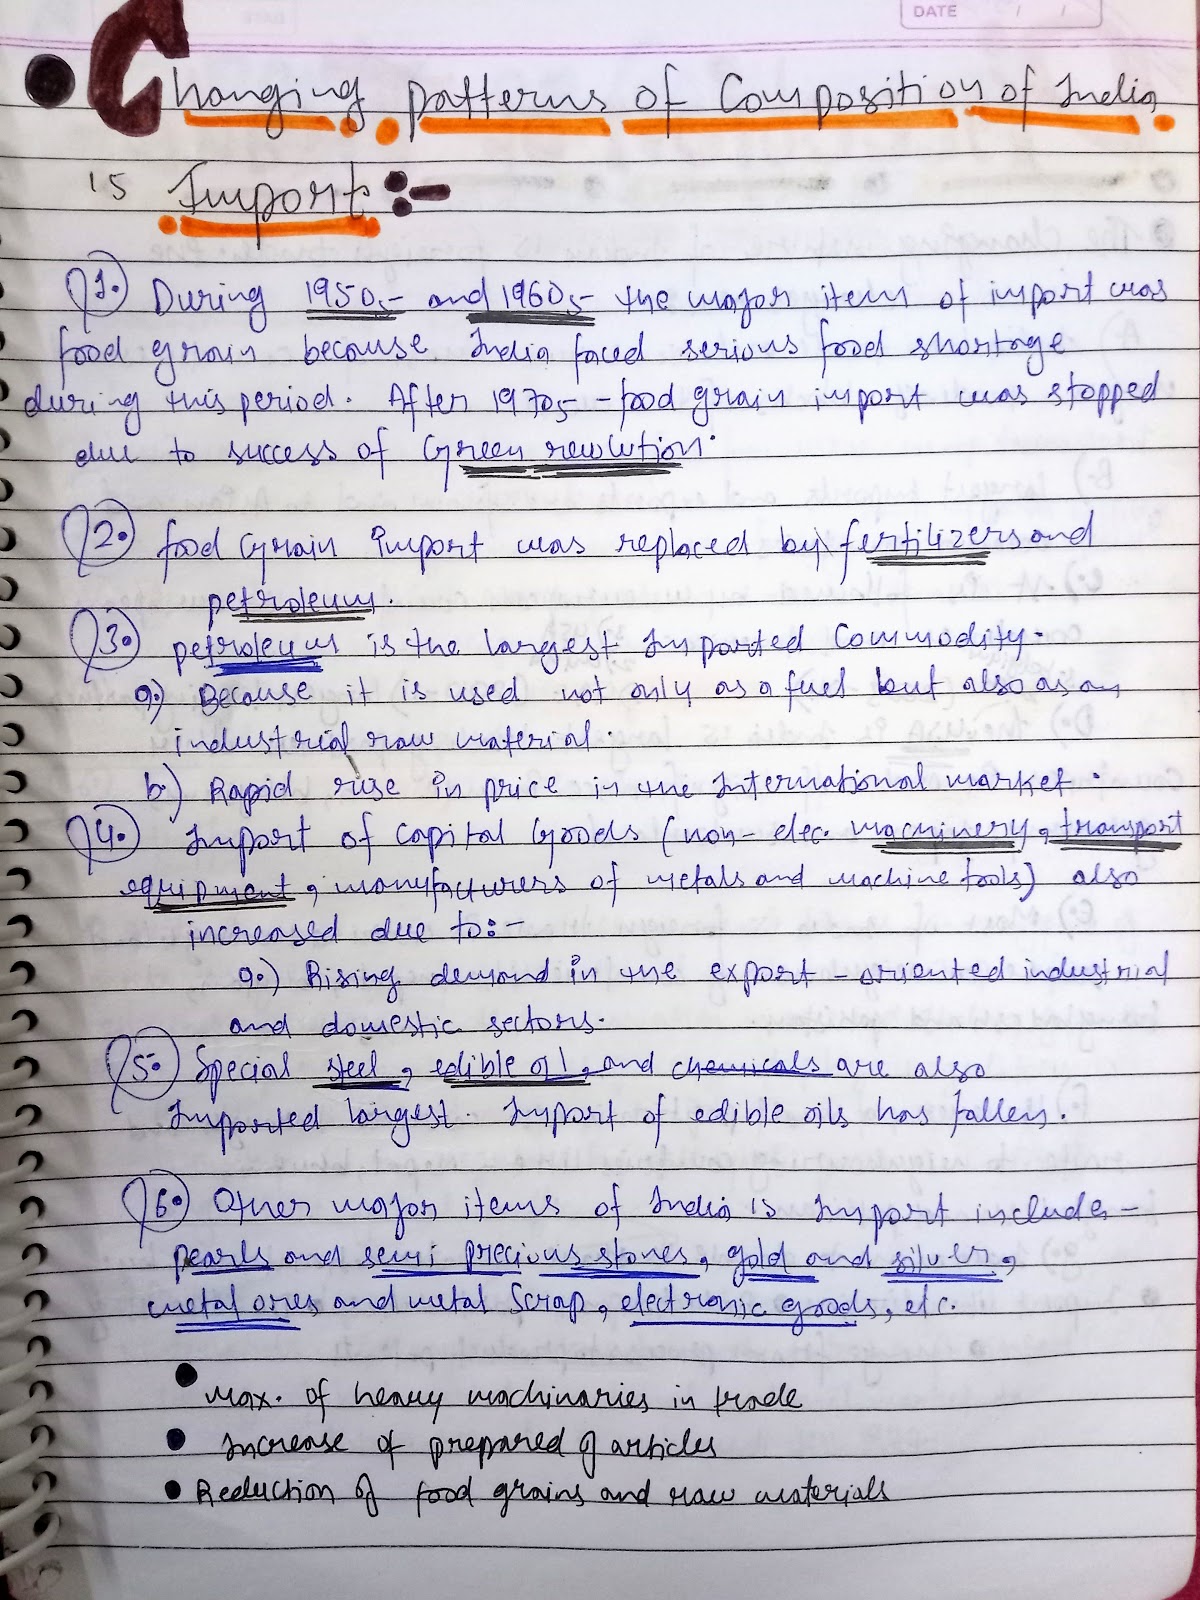 DATE / /
Changing patterns of Composition of India
is Import :-
1. During 1950s- and 1960s- the major item of import was
food grain because India faced serious food shortage
during this period. After 1970s - food grain import was stopped
due to success of Green revolution.
2. food Grain import was replaced by fertilizers and
petroleum.
3. petroleum is the largest Imported Commodity.
a.) Because it is used not only as a fuel but also as an
industrial raw material.
b.) Rapid rise in price in the International market.
4. Import of Capital Goods (non-elec. machinery, transport
equipment, manufacturers of metals and machine tools) also
increased due to:-
a.) Rising demand in the export-oriented industrial
and domestic sectors.
5. Special steel, edible oil, and chemicals are also
Imported largest. Import of edible oils has fallen.
6. Other major items of India is Import include-
pearls and semi precious stones, gold and silver,
metal ores and metal Scrap, electronic goods, etc.
• Max. of heavy machinaries in trade
• Increase of prepared of articles
• Reduction of food grains and raw materials